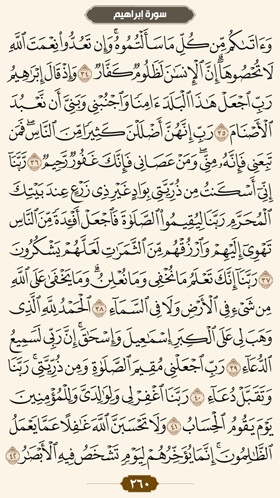 سورة إبراهيم
وَءَاتَىٰكُم مِّن كُلِّ مَا سَأَلْتُمُوهُ ۚ وَإِن تَعُدُّوا۟ نِعْمَتَ ٱللَّهِ
لَا تُحْصُوهَآ ۗ إِنَّ ٱلْإِنسَٰنَ لَظَلُومٌ كَفَّارٌ ٣٤ وَإِذْ قَالَ إِبْرَٰهِيمُ
رَبِّ ٱجْعَلْ هَٰذَا ٱلْبَلَدَ ءَامِنًا وَٱجْنُبْنِى وَبَنِىَّ أَن نَّعْبُدَ
ٱلْأَصْنَامَ ٣٥ رَبِّ إِنَّهُنَّ أَضْلَلْنَ كَثِيرًا مِّنَ ٱلنَّاسِ ۖ فَمَن
تَبِعَنِى فَإِنَّهُۥ مِنِّى ۖ وَمَنْ عَصَانِى فَإِنَّكَ غَفُورٌ رَّحِيمٌ ٣٦ رَّبَّنَآ
إِنِّىٓ أَسْكَنتُ مِن ذُرِّيَّتِى بِوَادٍ غَيْرِ ذِى زَرْعٍ عِندَ بَيْتِكَ
ٱلْمُحَرَّمِ رَبَّنَا لِيُقِيمُوا۟ ٱلصَّلَوٰةَ فَٱجْعَلْ أَفْـِٔدَةً مِّنَ ٱلنَّاسِ
تَهْوِىٓ إِلَيْهِمْ وَٱرْزُقْهُم مِّنَ ٱلثَّمَرَٰتِ لَعَلَّهُمْ يَشْكُرُونَ
٣٧ رَبَّنَآ إِنَّكَ تَعْلَمُ مَا نُخْفِى وَمَا نُعْلِنُ ۗ وَمَا يَخْفَىٰ عَلَى ٱللَّهِ
مِن شَىْءٍ فِى ٱلْأَرْضِ وَلَا فِى ٱلسَّمَآءِ ٣٨ ٱلْحَمْدُ لِلَّهِ ٱلَّذِى
وَهَبَ لِى عَلَى ٱلْكِبَرِ إِسْمَٰعِيلَ وَإِسْحَٰقَ ۚ إِنَّ رَبِّى لَسَمِيعُ
ٱلدُّعَآءِ ٣٩ رَبِّ ٱجْعَلْنِى مُقِيمَ ٱلصَّلَوٰةِ وَمِن ذُرِّيَّتِى ۚ رَبَّنَا
وَتَقَبَّلْ دُعَآءِ ٤٠ رَبَّنَا ٱغْفِرْ لِى وَلِوَٰلِدَىَّ وَلِلْمُؤْمِنِينَ
يَوْمَ يَقُومُ ٱلْحِسَابُ ٤١ وَلَا تَحْسَبَنَّ ٱللَّهَ غَٰفِلًا عَمَّا يَعْمَلُ
ٱلظَّٰلِمُونَ ۚ إِنَّمَا يُؤَخِّرُهُمْ لِيَوْمٍ تَشْخَصُ فِيهِ ٱلْأَبْصَٰرُ ٤٢
٢٦٠